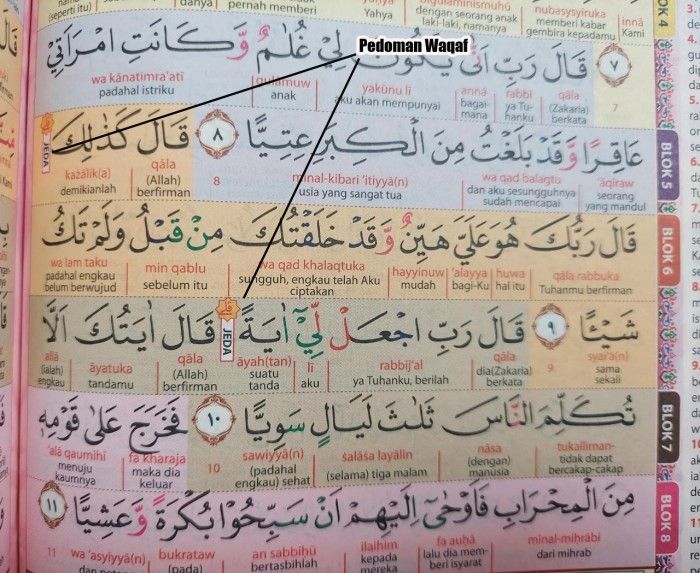 (danya itu) pernah memberi Yahya dengan seorang anak laki-laki, namanya memberi kabar gembira kepadamu Kami
nubasysyiruka innā
BLOK 4
Pedoman Waqaf
قَالَ رَبِّ اَنّٰى يَكُوْنُ لِيْ غُلٰمٌ وَّكَانَتِ امْرَاَتِيْ ٧
qāla rabbi annā yakūnu lī gulāmuw wa kānatimra'atī
(Zakaria) berkata ya Tu-hanku bagai-mana aku akan mempunyai anak padahal istriku
7
عَاقِرًا وَّقَدْ بَلَغْتُ مِنَ الْكِبَرِ عِتِيًّا ٨ قَالَ كَذٰلِكَ
JEDA
āqiraw wa qad balagtu minal-kibari 'itiyyā(n) 8 qāla każālik(a)
seorang yang mandul dan aku sesungguhnya sudah mencapai usia yang sangat tua (Allah) berfirman demikianlah
BLOK 5
قَالَ رَبُّكَ هُوَ عَلَيَّ هَيِّنٌ وَّقَدْ خَلَقْتُكَ مِنْ قَبْلُ وَلَمْ تَكُ
qāla rabbuka huwa 'alayya hayyinuw wa qad khalaqtuka min qablu wa lam taku
Tuhanmu berfirman hal itu bagi-Ku mudah sungguh, engkau telah Aku ciptakan sebelum itu padahal engkau belum berwujud
BLOK 6
شَيْـًٔا ٩ قَالَ رَبِّ اجْعَلْ لِّيْٓ اٰيَةً قَالَ اٰيَتُكَ اَلَّا
JEDA
syai'ā(n) 9 qāla rabbij'al lī āyah(tan) qāla āyatuka allā
sama sekali dia(Zakaria) berkata ya Tuhanku, berilah aku suatu tanda (Allah) berfirman tandamu (ialah) engkau
تُكَلِّمَ النَّاسَ ثَلٰثَ لَيَالٍ سَوِيًّا ١٠ فَخَرَجَ عَلٰى قَوْمِهٖ
tukalliman-nāsa śalāśa layālin sawiyyā(n) 10 fa kharaja 'alā qaumihī
tidak dapat bercakap-cakap (dengan) manusia (selama) tiga malam (padahal engkau) sehat maka dia keluar menuju kaumnya
BLOK 7
مِنَ الْمِحْرَابِ فَاَوْحٰٓى اِلَيْهِمْ اَنْ سَبِّحُوْا بُكْرَةً وَّعَشِيًّا ١١
minal-miḥrābi fa auḥā ilaihim an sabbiḥū bukrataw wa 'asyiyyā(n) 11
dari mihrab lalu dia mem-beri isyarat kepada mereka hendaklah bertasbihlah (pada)
BLOK 8